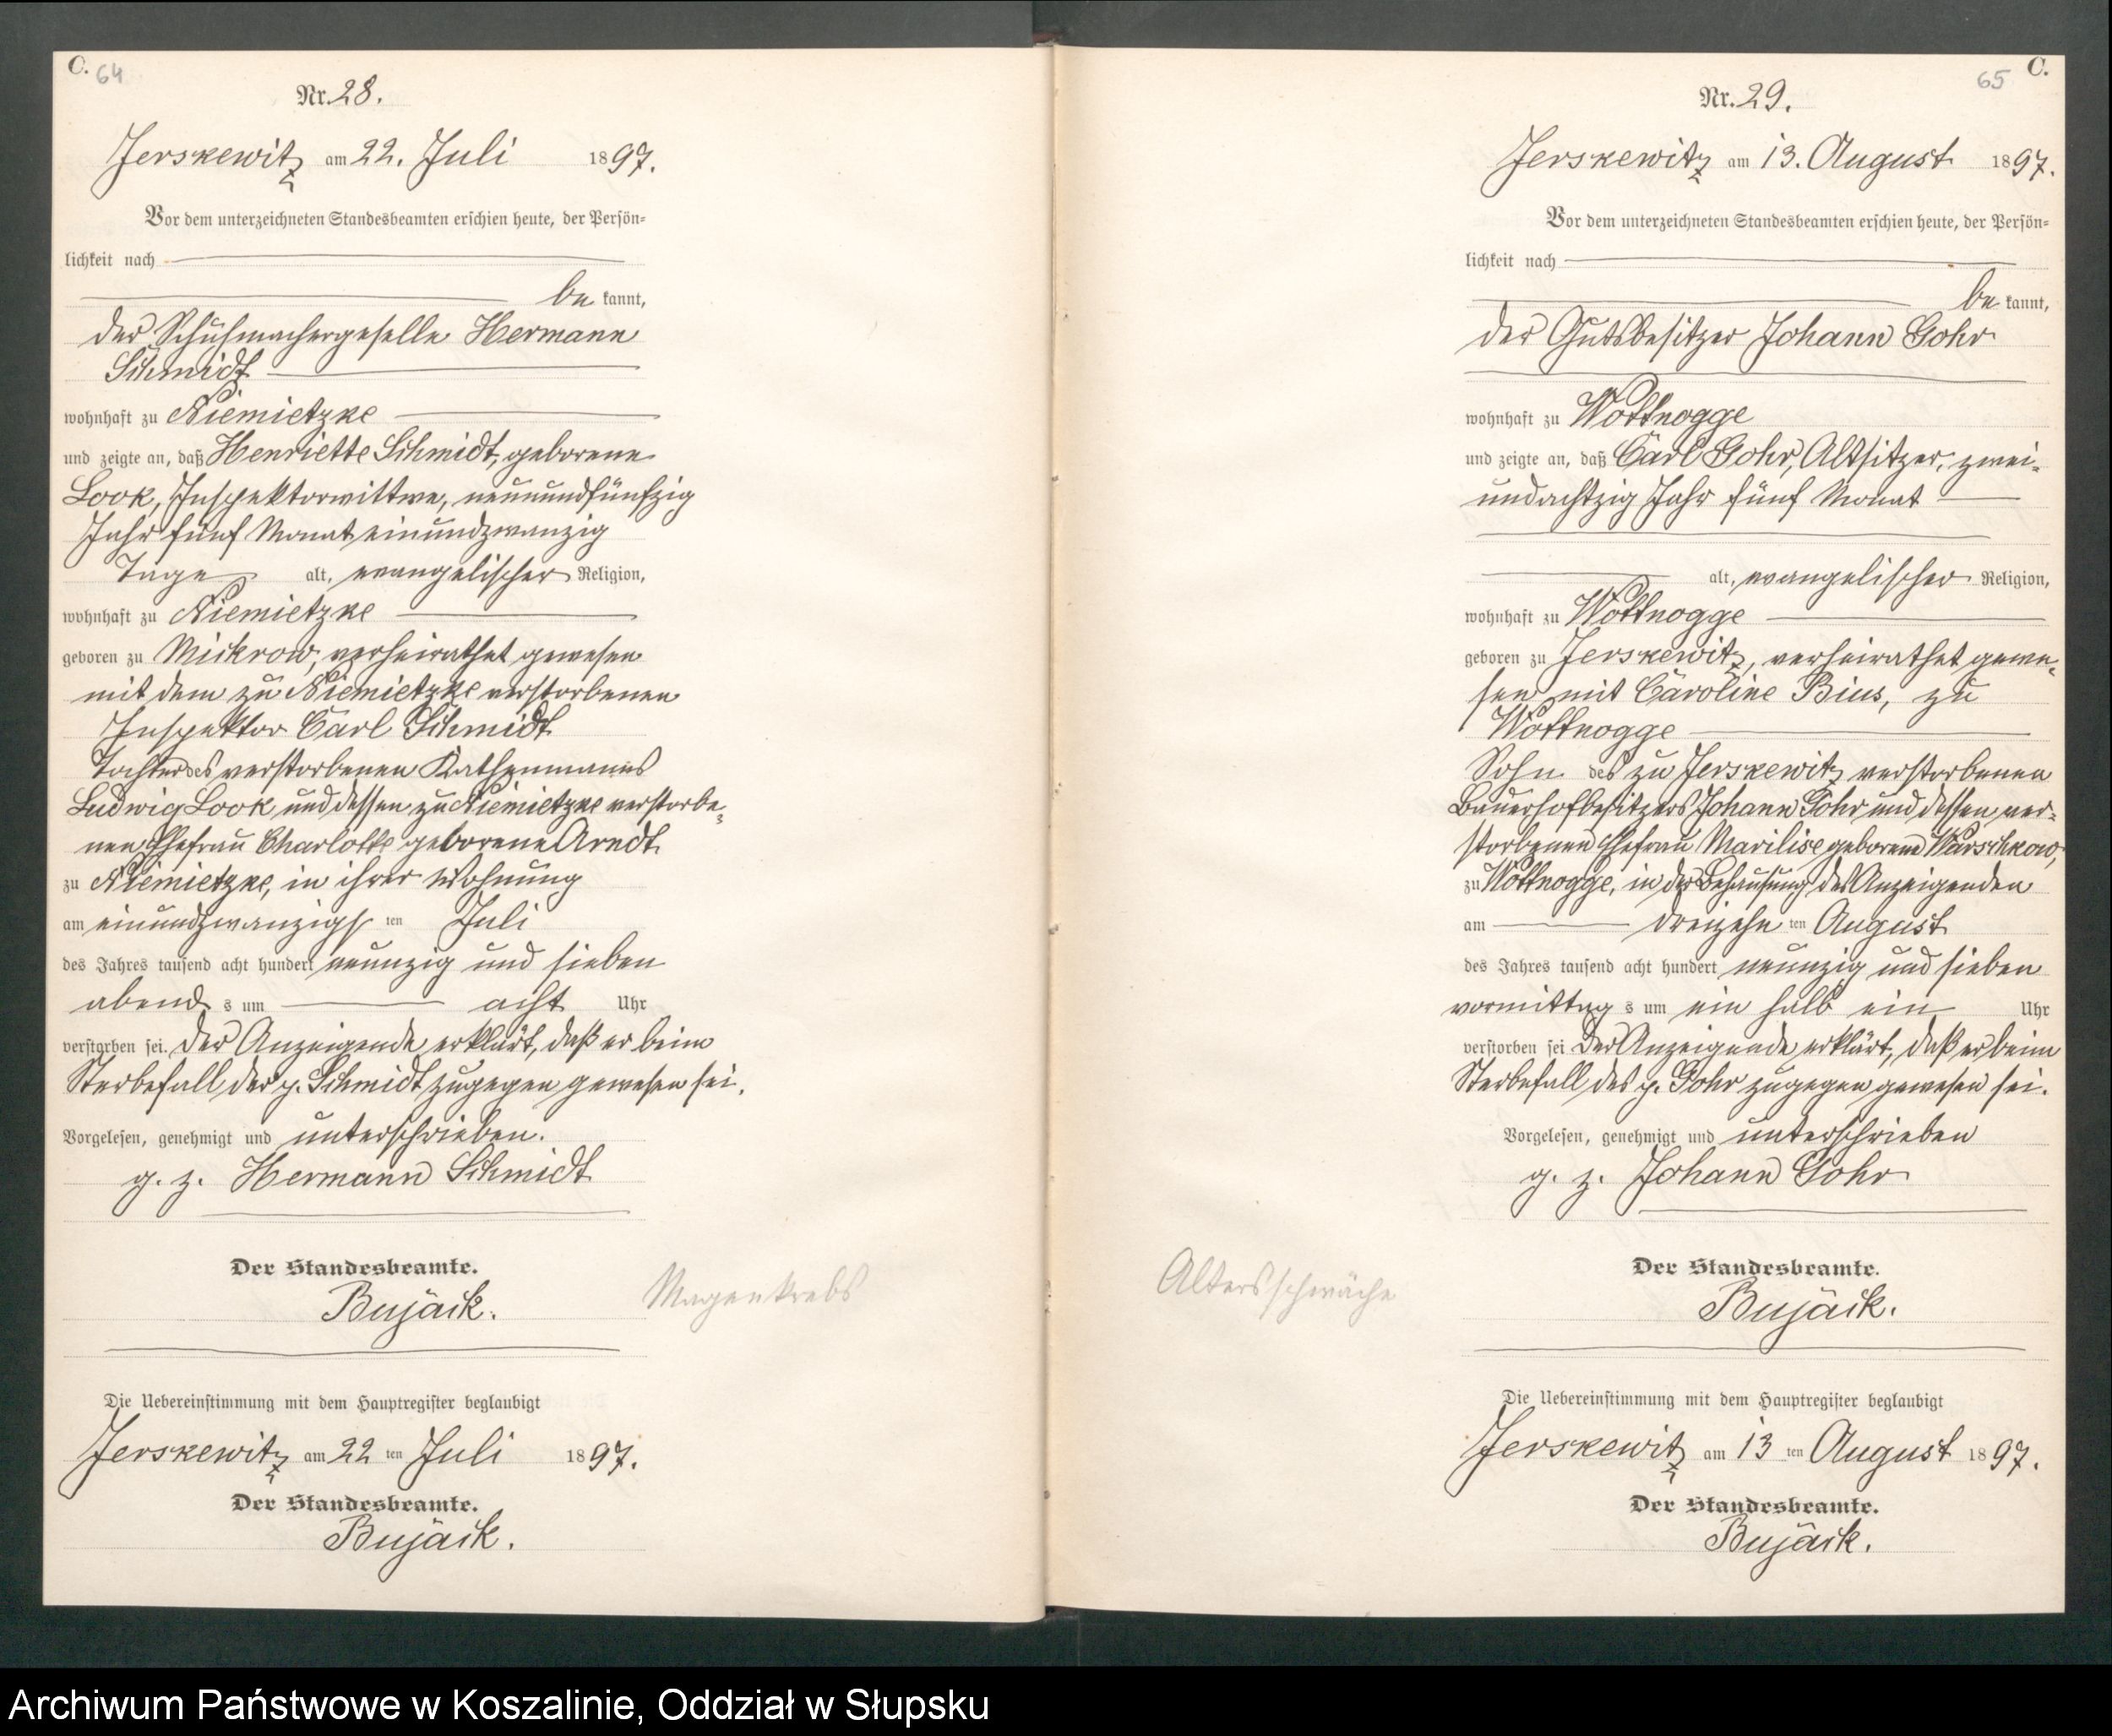 C. 64
Nr. 28.
Jerskewitz am 22. Juli 1897.
Vor dem unterzeichneten Standesbeamten erschien heute, der Persön-
lichkeit nach
be kannt,
der Schuhmachergeselle Hermann
Schmidt
wohnhaft zu Niemietzke
und zeigte an, daß Henriette Schmidt, geborene
Look, Inspektorwittwe, neunundfünfzig
Jahr fünf Monat einundzwanzig
Tage alt, evangelischer Religion,
wohnhaft zu Niemietzke
geboren zu Mickrow, verheirathet gewesen
mit dem zu Niemietzke verstorbenen
Inspektor Carl Schmidt
Tochter des verstorbenen Kathenmanns
Ludwig Look und dessen zu Niemietzke verstorbe-
nen Ehefrau Charlotte geborene Arndt
zu Niemietzke, in ihrer Wohnung
am einundzwanzigs ten Juli
des Jahres tausend acht hundert neunzig und sieben
abend s um acht Uhr
verstorben sei. Der Anzeigende erklärt, daß er beim
Sterbefall der p. Schmidt zugegen gewesen sei.
Vorgelesen, genehmigt und unterschrieben.
g. z. Hermann Schmidt
Der Standesbeamte.
Bujack.
Magenkrebs
Die Uebereinstimmung mit dem Hauptregister beglaubigt
Jerskewitz am 22 ten Juli 1897.
Der Standesbeamte.
Bujack.
65 C.
Nr. 29.
Jerskewitz am 13. August 1897.
Vor dem unterzeichneten Standesbeamten erschien heute, der Persön-
lichkeit nach
be kannt,
der Gutsbesitzer Johann Gohr
wohnhaft zu Wottnogge
und zeigte an, daß Carl Gohr, Altsitzer, zwei-
undachtzig Jahr fünf Monat
alt, evangelischer Religion,
wohnhaft zu Wottnogge
geboren zu Jerskewitz, verheirathet gewe-
sen mit Caroline Bius, zu
Wottnogge
Sohn des zu Jerskewitz verstorbenen
Bauerhofbesitzers Johann Gohr und dessen ver-
storbenen Ehefrau Marilise geborene Warschkow,
zu Wottnogge, in der Behausung des Anzeigenden
am dreizehn ten August
des Jahres tausend acht hundert neunzig und sieben
vormittag s um ein halb ein Uhr
verstorben sei Der Anzeigende erklärt, daß er beim
Sterbefall des p. Gohr zugegen gewesen sei.
Vorgelesen, genehmigt und unterschrieben
g. z. Johann Gohr
Der Standesbeamte.
Bujack.
Altersschwäche
Die Uebereinstimmung mit dem Hauptregister beglaubigt
Jerskewitz am 13 ten August 1897.
Der Standesbeamte.
Bujack.
Archiwum Państwowe w Koszalinie, Oddział w Słupsku